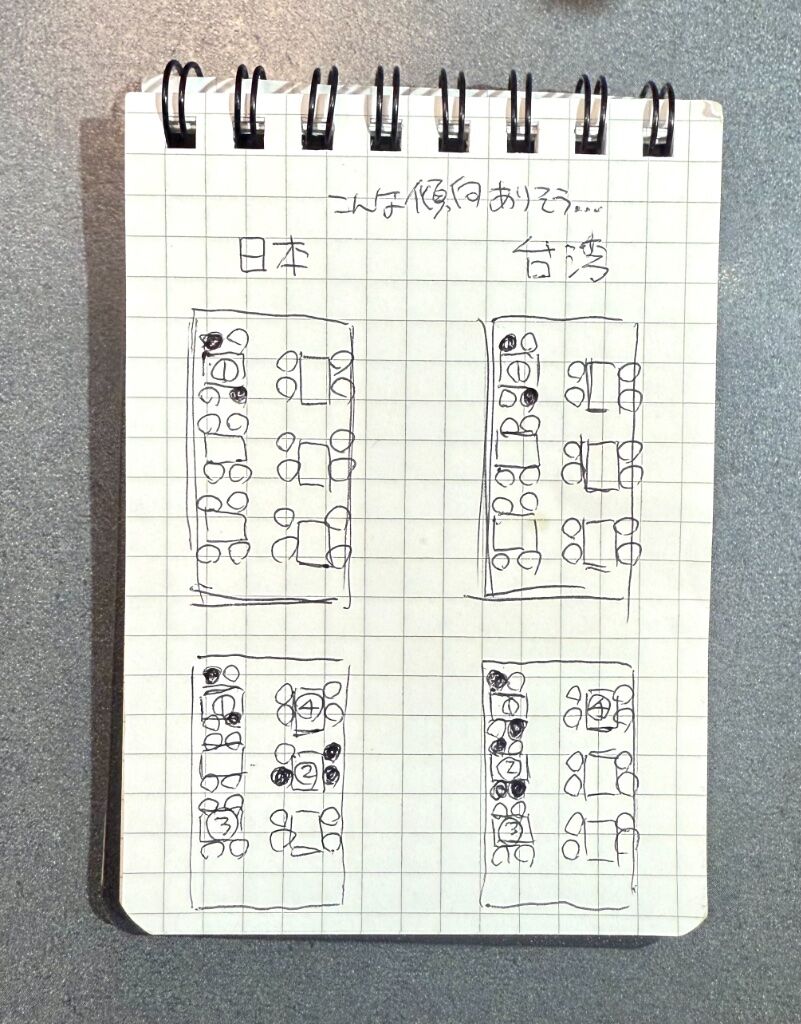 こんな傾向ありそう...
日本
台湾
①
①
①
④
②
③
①
④
②
③